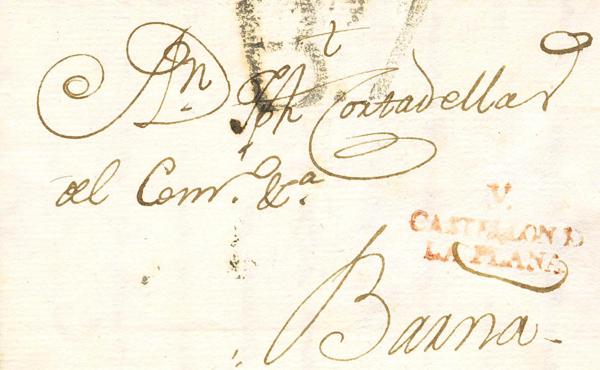 Dn. Jph Cortadellas
del Comro. &a.
V.
CASTELLON D
LA PLANA
Barna